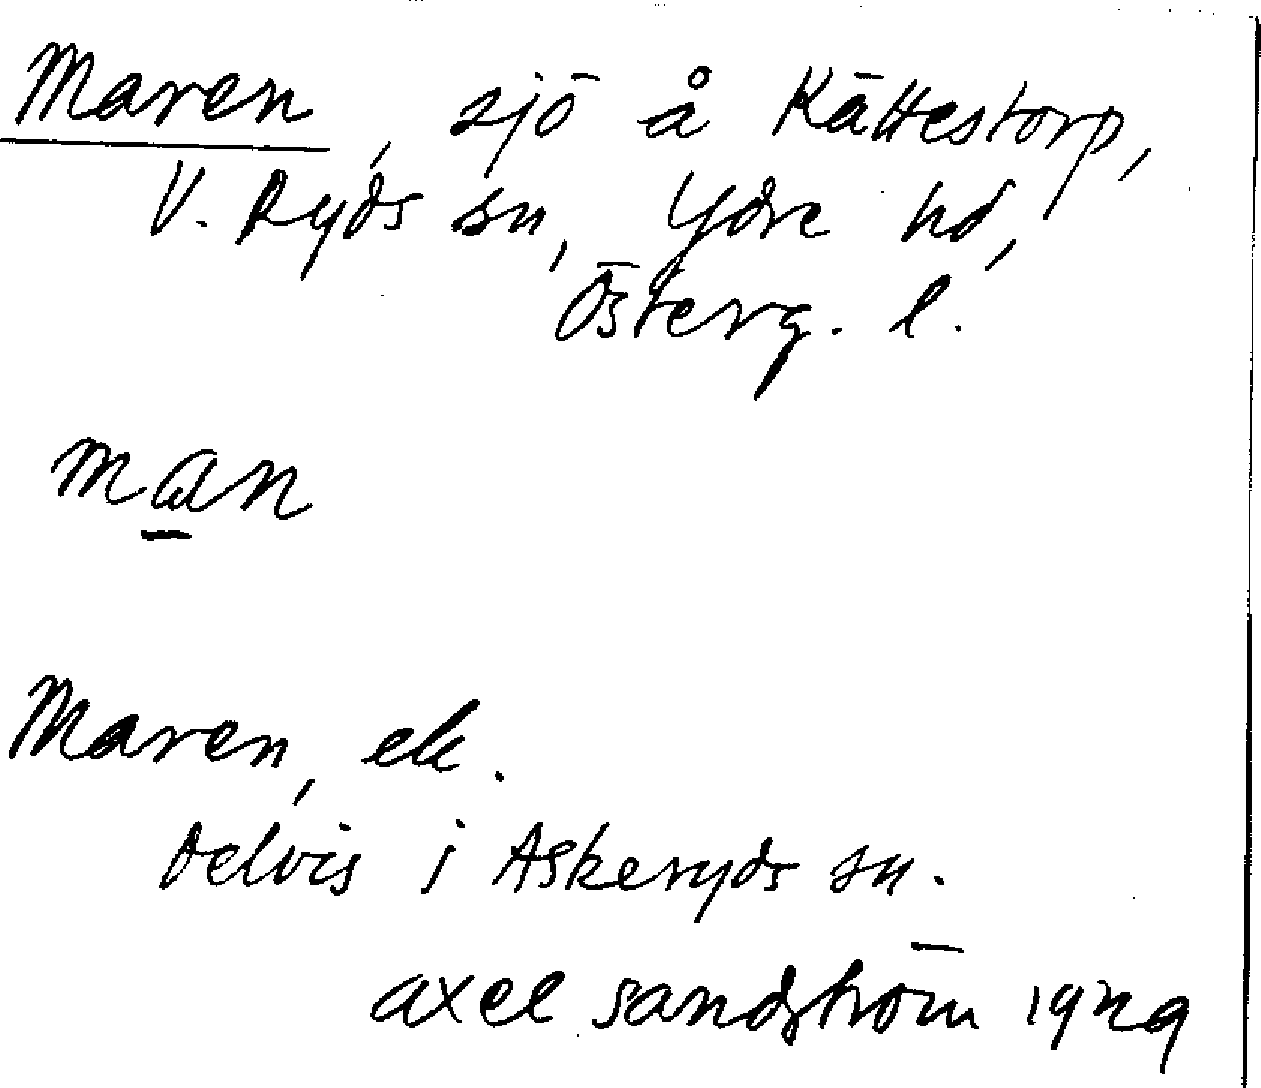 Maren, sjö å Kättestorp,
V. Ryds sn, Ydre hd,
Österg. l.
man
Maren, ek.
Delvis i Askeryds sn.
Axel Sandström 1929